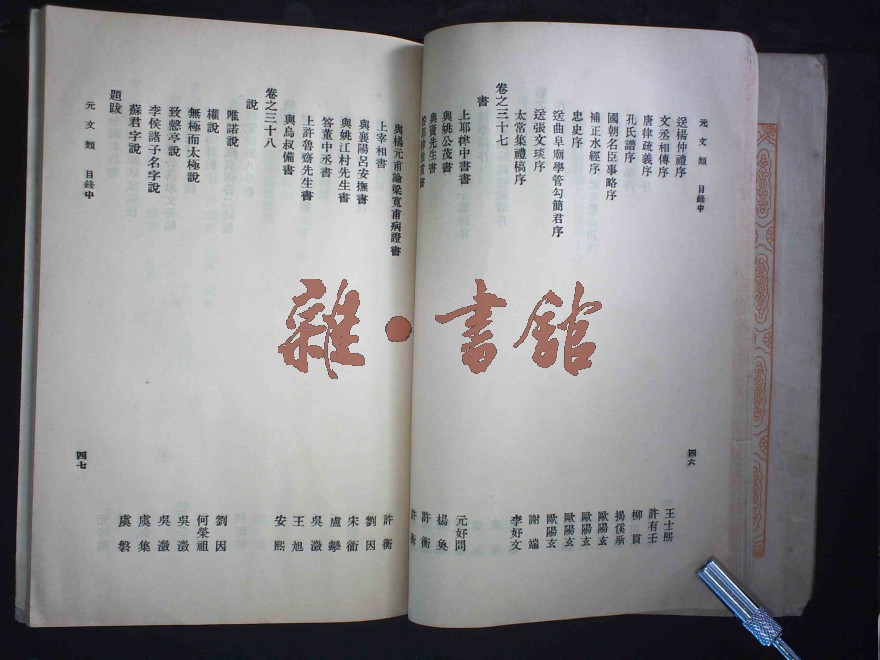 元文類 目錄中 四六
送楊仲禮序 王士熙
文丞相傳序 許有壬
唐律疏義序 柳貫
孔氏譜序 揭傒斯
國朝名臣事略序 歐陽玄
補正水經序 歐陽玄
忠史序 歐陽玄
送曲阜廟學管勾簡君序 歐陽玄
送張文琰序 謝端
太常集禮稿序 李好文
卷之三十七
書
上耶律中書書 元好問
與姚公茂書 楊奐
與竇先生書 許衡
許衡
與楊元甫論梁寬甫病證書 許衡
上宰相書 劉因
與襄陽呂安撫書 宋衜
與姚江村先生書 盧摯
答董中丞書 吳澂
上許魯齋先生書 王旭
與烏叔備書 安熙
卷之三十八
說
唯諾說 劉因
權說 何榮祖
無極而太極說 吳澂
致愨亭說 吳澂
李侯諸子名字說 虞集
蘇君字說 虞磐
題跋
元文類 目錄中 四七
雜·書館